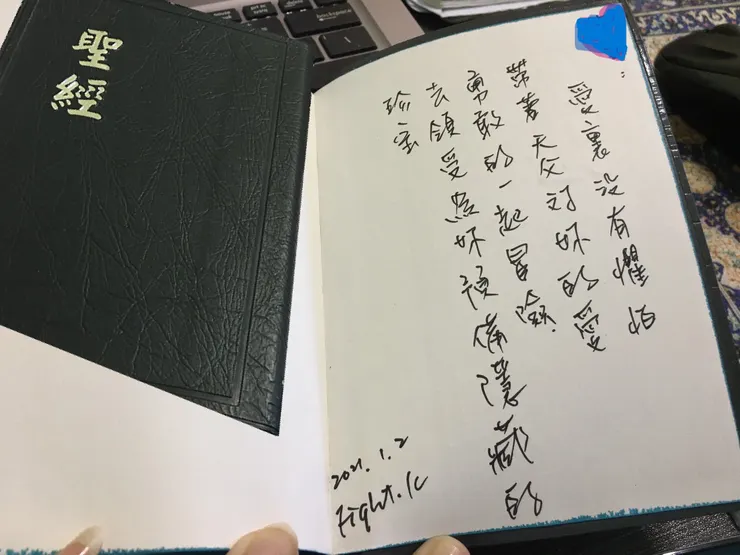 聖經
愛裏没有懼怕
帶著天父对妳的愛
勇敢的一起冒險.
去領受為妳預備隱藏的
珍宝
2021.1.2
Fight.K